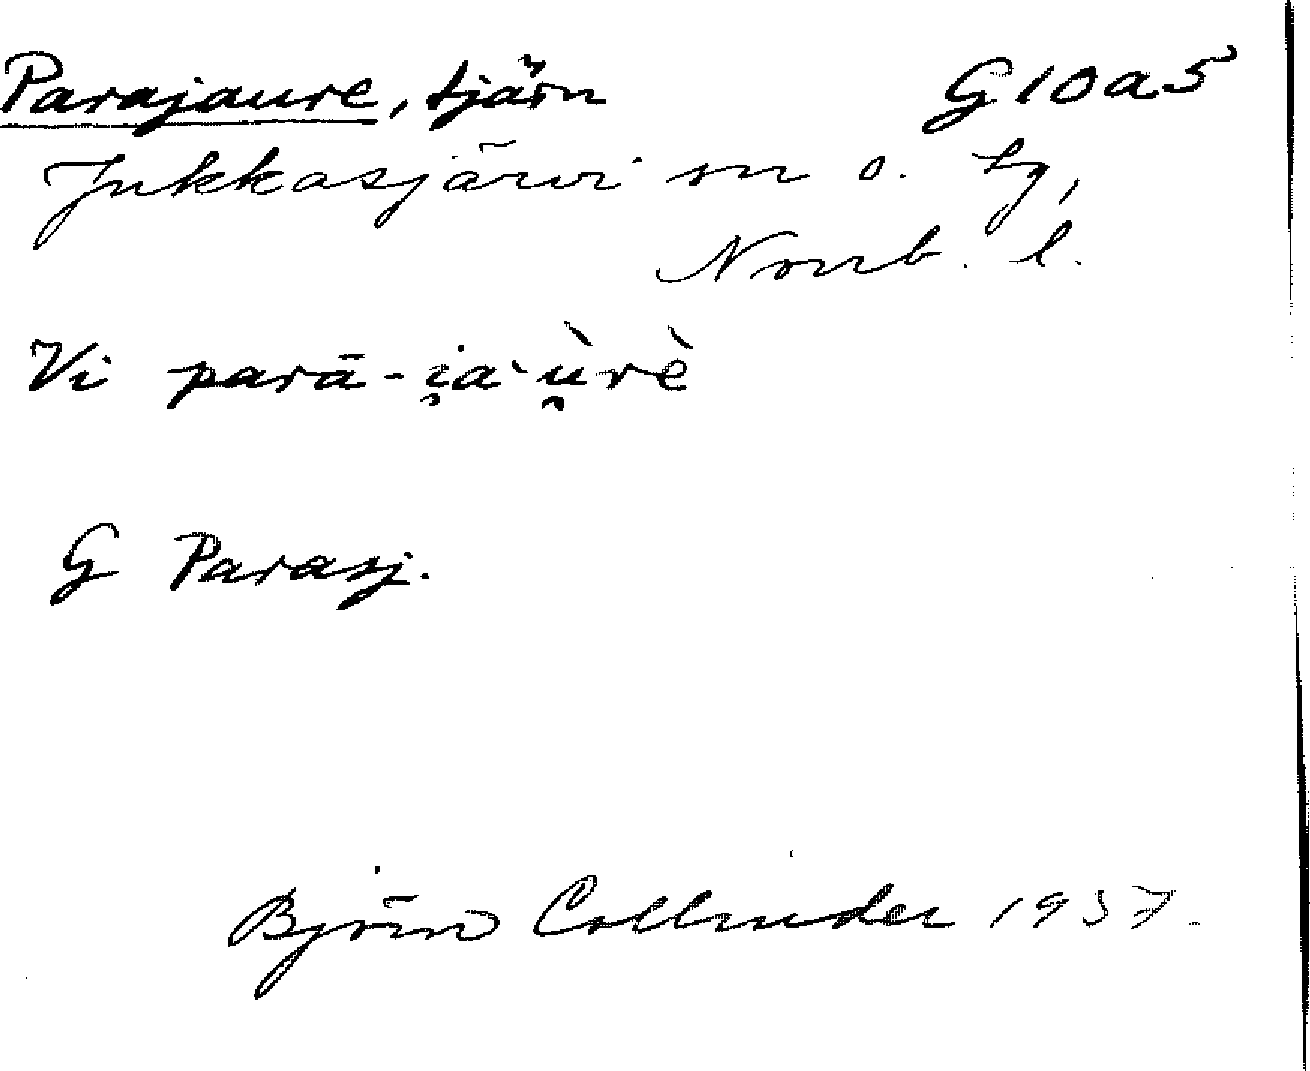 Parajaure, tjärn G10a5
Jukkasjärvi sn o. tg,
Norrb. l.
Vi parā-i̯aˋù̯rè
G Parasj.
Björn Collinder 1937.